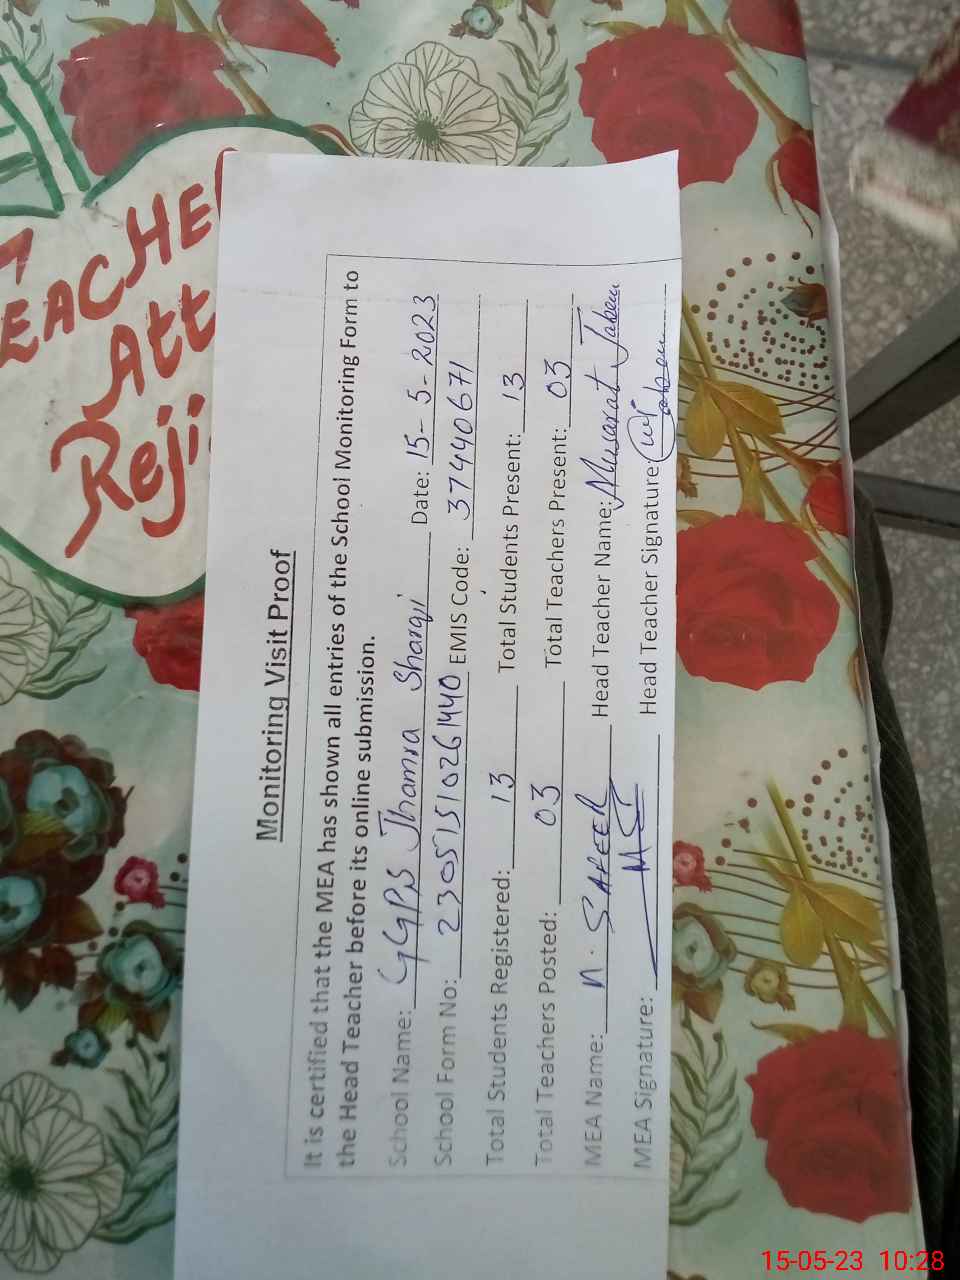 TEACHE
Att
Reji
Monitoring Visit Proof
It is certified that the MEA has shown all entries of the School Monitoring Form to
the Head Teacher before its online submission.
School Name: GGPS Jhamra Sharqi Date: 15-5-2023
School Form No: 23051510261440 EMIS Code: 37440671
Total Students Registered: 13 Total Students Present: 13
Total Teachers Posted: 03 Total Teachers Present: 03
MEA Name: M. SAFEER Head Teacher Name: Musarat Jabeen
MEA Signature: Head Teacher Signature:
15-05-23 10:28